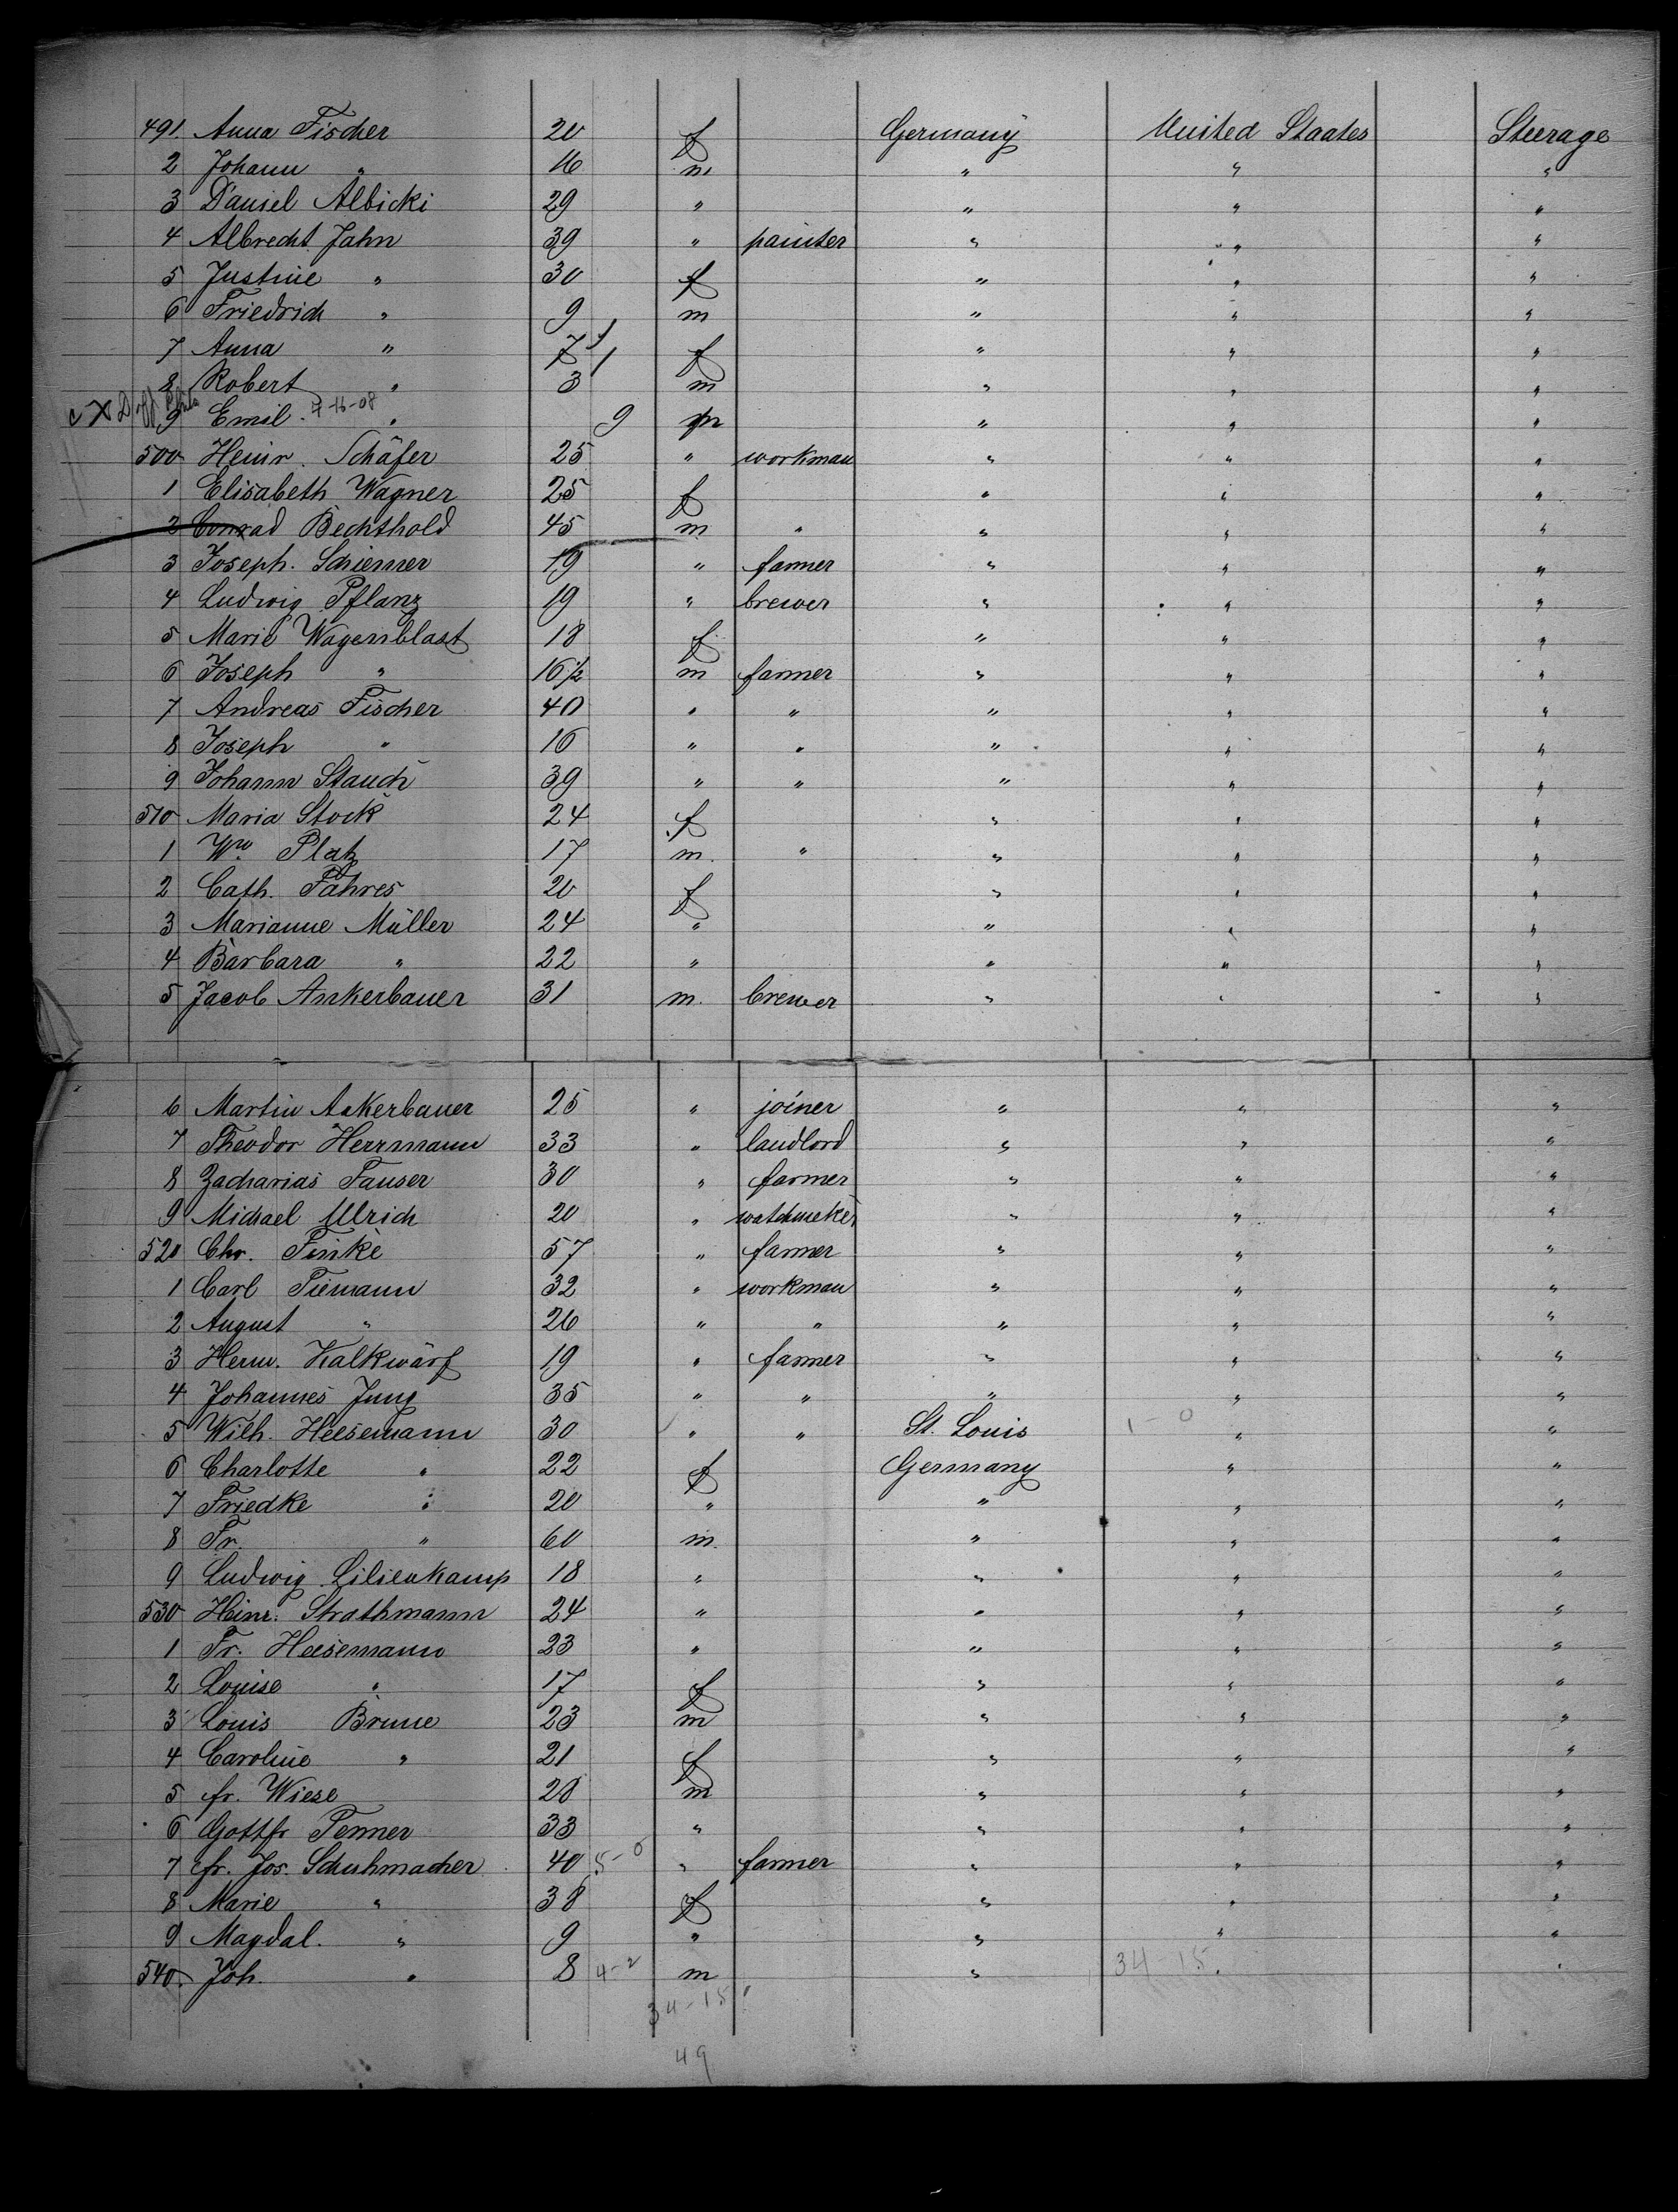 491. Anna Fischer 20 f Germany United Staates Steerage
2 Johann " 16 m " " "
3 Daniel Albicki 29 " " " "
4 Albrecht Jahn 39 " painter " " "
5 Justine " 30 f " " "
6 Friedrich " 9 m " " "
7 Anna " 7 f " " "
8 Robert " 3 m " " "
9 Emil " 4-16-08 9 m " " "
500 Heinr. Schäfer 25 " workman " " "
1 Elisabeth Wagner 25 f " " "
2 Conrad Bechthold 45 m " " " "
3 Joseph. Schiemer 19 " farmer " " "
4 Ludwig Pflanz 19 " brewer " " "
5 Marie Wagenblast 18 f " " "
6 Joseph " 16 1/2 m farmer " " "
7 Andreas Fischer 40 " " " " "
8 Joseph " 16 " " " " "
9 Johann Stauch 39 " " " " "
510 Maria Stock 24 f " " "
1 Wm Platz 17 m. " " " "
2 Cath. Fahres 20 f " " "
3 Marianne Müller 24 " " " "
4 Barbara " 22 " " " "
5 Jacob Ankerbauer 31 m. brewer " " "
6 Martin Ankerbauer 25 " joiner " " "
7 Theodor Herrmann 33 " landlord " " "
8 Zacharias Fauser 30 " farmer " " "
9 Michael Ulrich 20 " watchmeker " " "
520 Chr. Finke 57 " farmer " " "
1 Carl Tiemann 32 " workman " " "
2 August " 26 " " " " "
3 Herm. Kalkwarf 19 " farmer " " "
4 Johannes Jung 35 " " " " "
5 Wilh. Heesemann 30 " " St. Louis 1-0 " "
6 Charlotte " 22 f Germany " "
7 Friedke " 20 " " " "
8 Fr. " 60 m. " " "
9 Ludwig Lilienkamp 18 " " " "
530 Heinr. Strathmann 24 " " " "
1 Fr. Heesemann 23 " " " "
2 Louise " 17 f " " "
3 Louis Brune 23 m " " "
4 Caroline " 21 f " " "
5 fr. Wiese 28 m " " "
6 Gottfr Penner 33 " " " "
7 fr. Jos. Schuhmacher 40 5-0 " farmer " " "
8 Marie " 38 f " " "
9 Magdal. " 9 " " " "
540. Joh. " 8 4-2 m " 34-15 " "
34-15
49